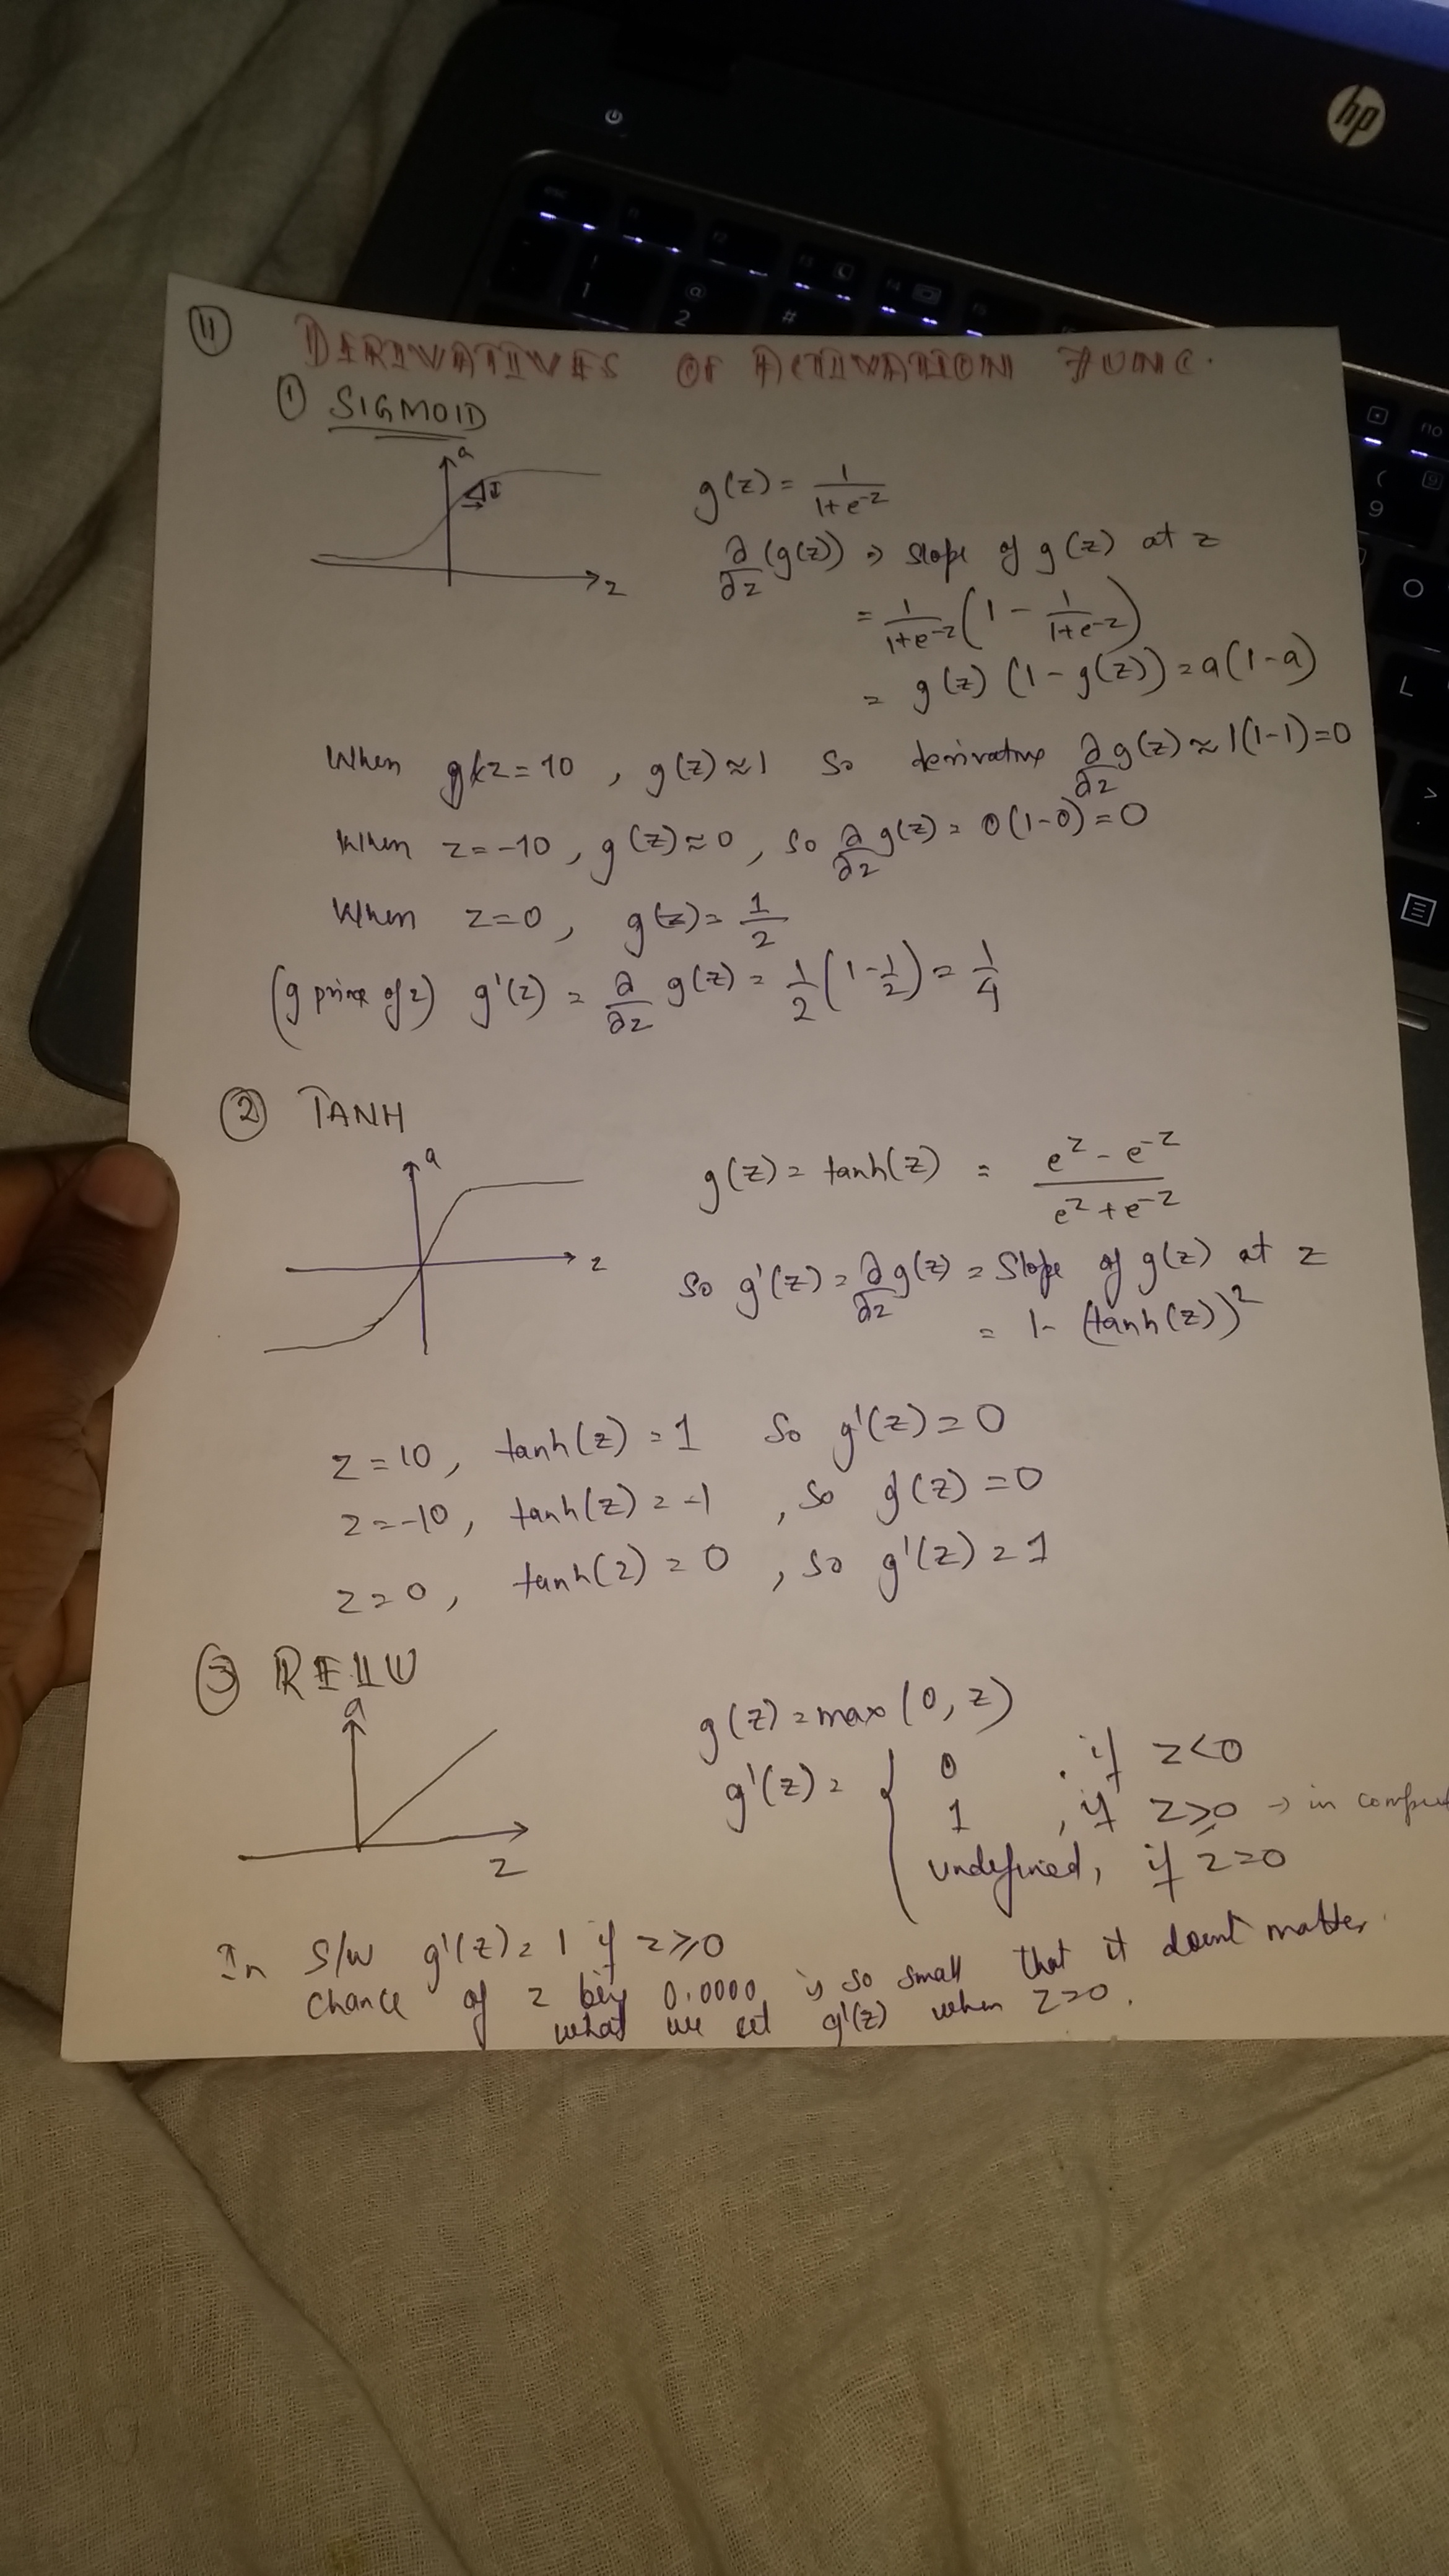 hp
esc
f1
f2
f3
f4
f5
f10
!
1
@
2
#
(
9
O
L
>
.
11
DERIVATIVES OF ACTIVATION FUNC.
① SIGMOID
a
z
g(z) = 1/(1+e^-z)
∂/∂z (g(z)) => slope of g(z) at z
= 1/(1+e^-z) (1 - 1/(1+e^-z))
= g(z) (1 - g(z)) = a(1-a)
When z = 10, g(z) ≈ 1 So derivative ∂/∂z g(z) ≈ 1(1-1) = 0
When z = -10, g(z) ≈ 0, so ∂/∂z g(z) = 0(1-0) = 0
When z = 0, g(z) = 1/2
(g prime of z) g'(z) = ∂/∂z g(z) = 1/2 (1 - 1/2) = 1/4
② TANH
a
z
g(z) = tanh(z) = (e^z - e^-z)/(e^z + e^-z)
So g'(z) = ∂/∂z g(z) = Slope of g(z) at z
= 1 - (tanh(z))^2
z = 10, tanh(z) = 1 So g'(z) = 0
z = -10, tanh(z) = -1, so g'(z) = 0
z = 0, tanh(z) = 0, so g'(z) = 1
③ RELU
a
z
g(z) = max(0, z)
g'(z) = { 0 , if z < 0
1 , if z ≥ 0 → in
undefined, if z = 0
In S/W g'(z) = 1 if z ≥ 0
Chance of z being 0.0000 is so small that it doesnt matter
what we set g'(z) when z=0.